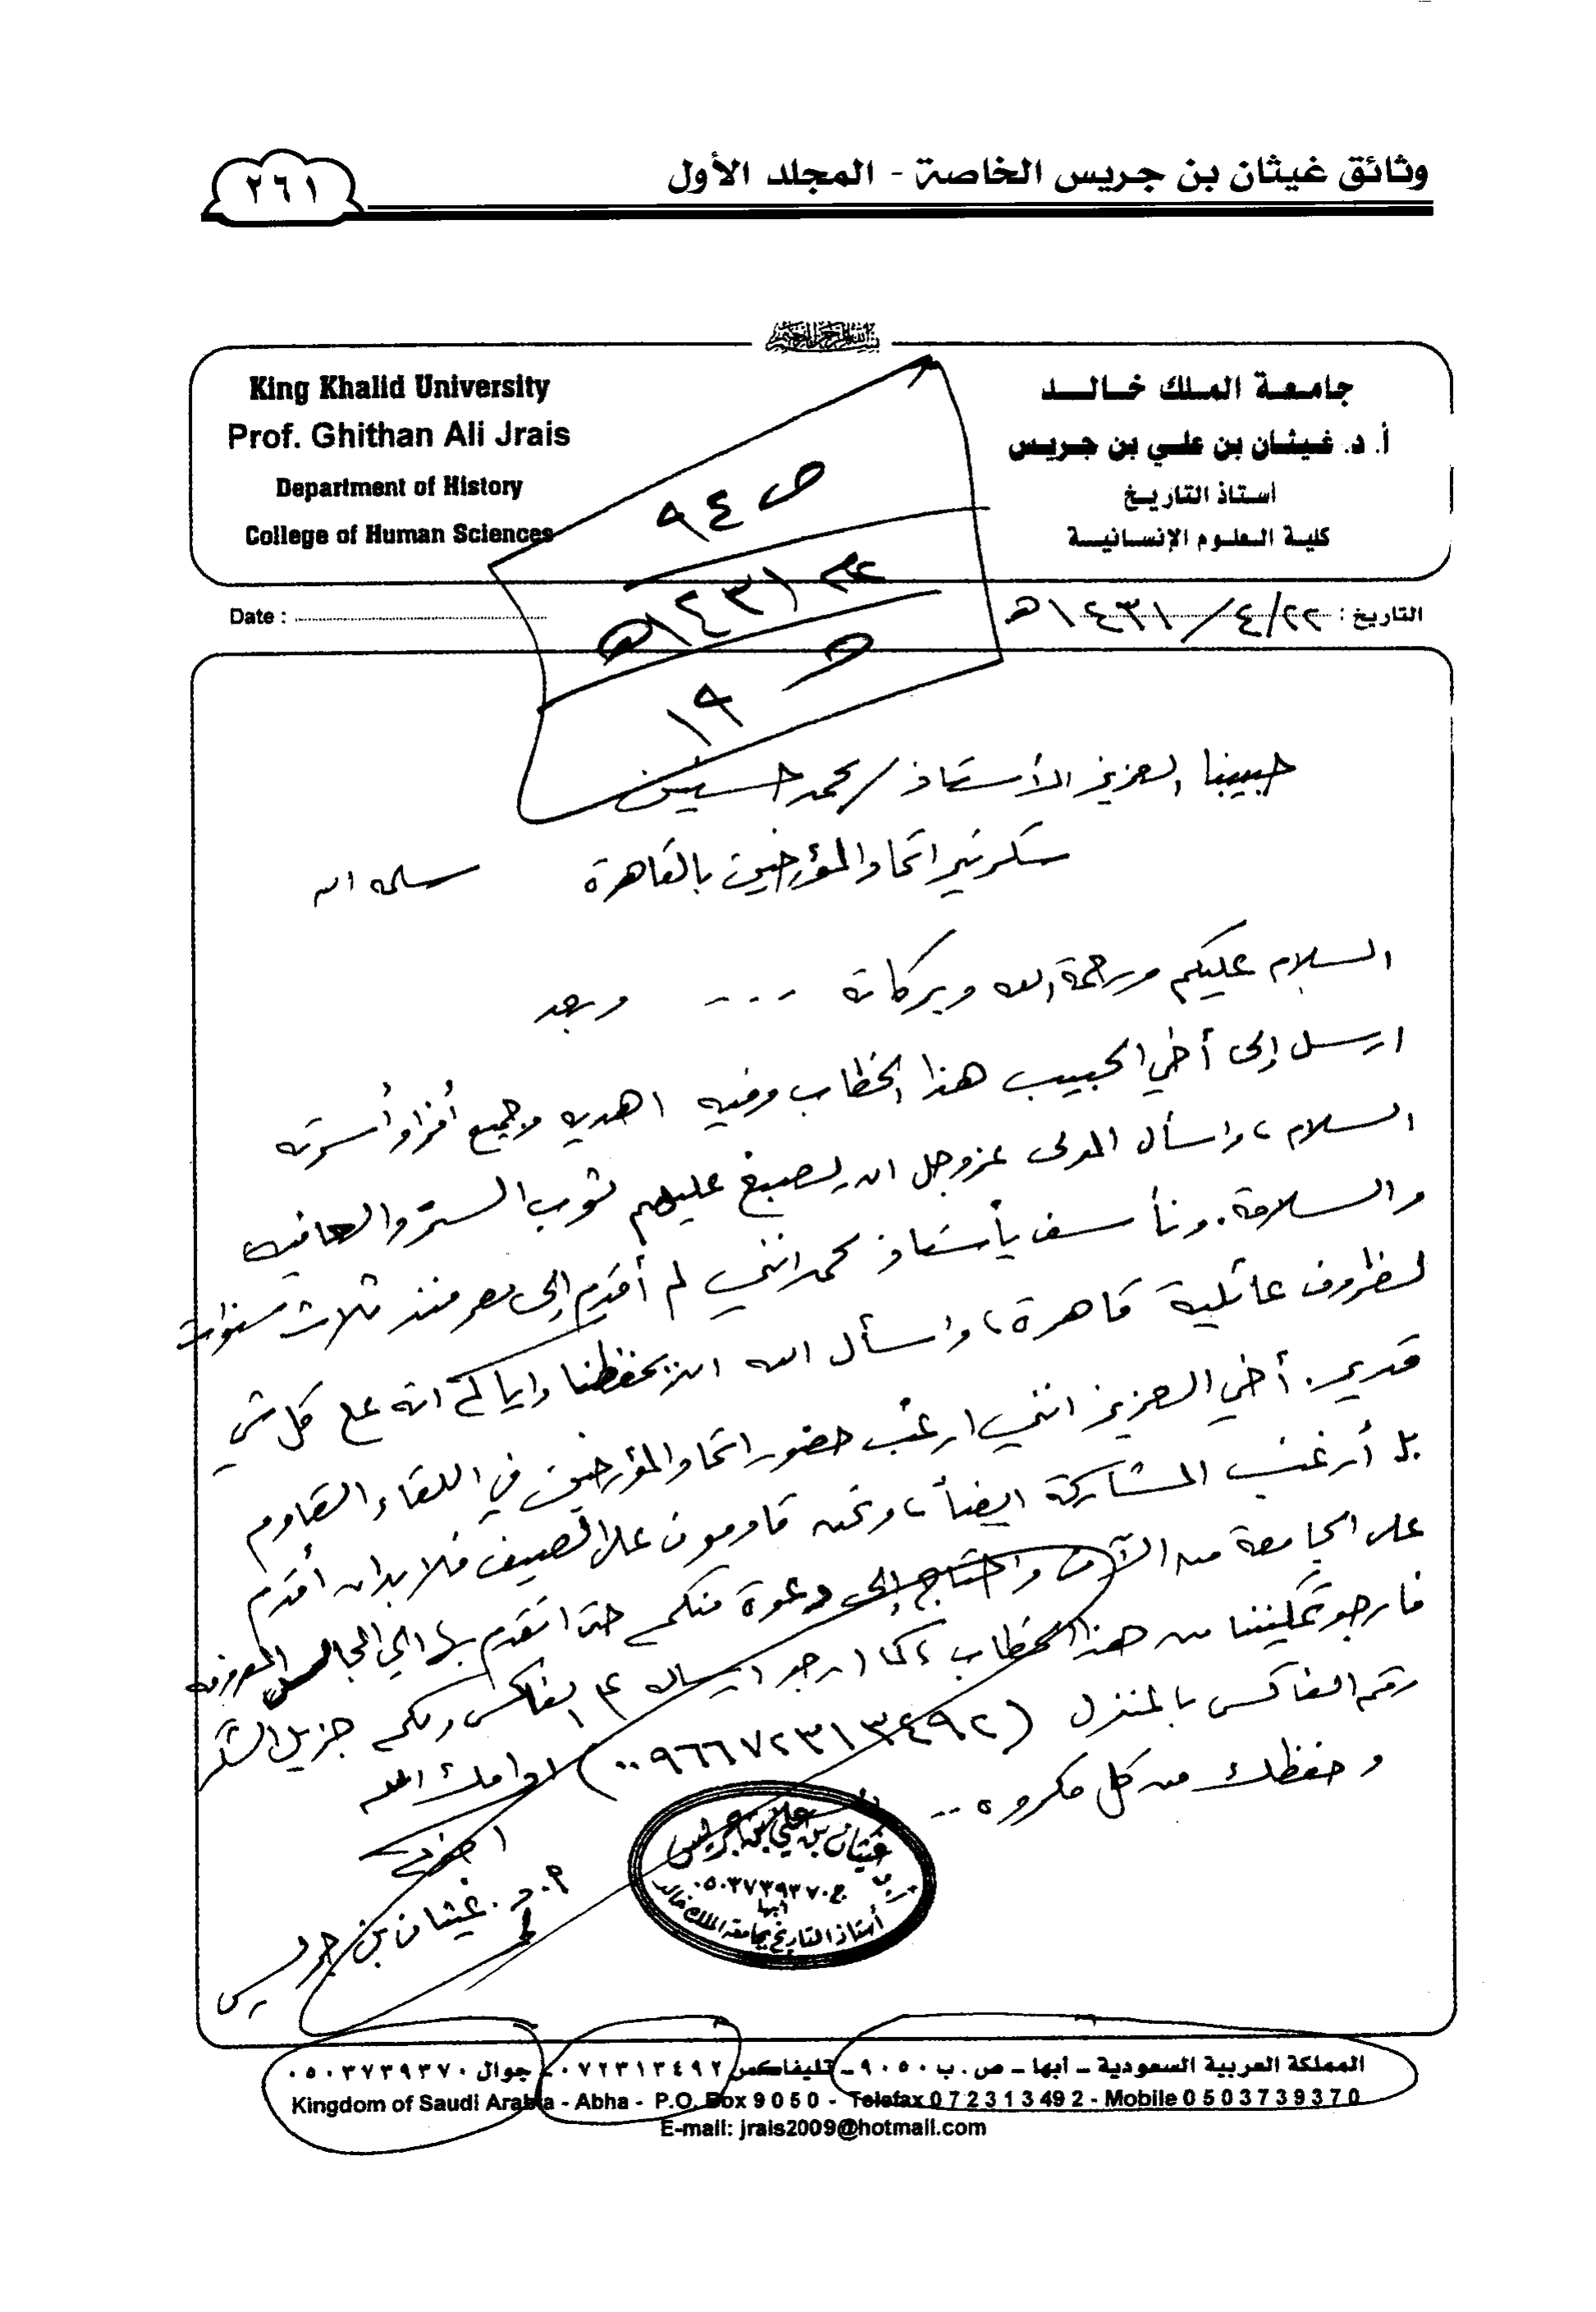 وثائق غيثان بن جريس الخاصة - المجلد الأول
٢٦١
King Khalid University
Prof. Ghithan Ali Jrais
Department of History
College of Human Sciences
جامعة الملك خالد
أ. د. غيثان بن علي بن جريس
أستاذ التاريخ
كلية العلوم الإنسانية
ص ٩٤
١٤٣١هـ
١٩
Date :
التاريخ : ٢٢/٤/١٤٣١هـ
حبيبنا العزيز الأستاذ/ محمد حسنين
سكرتير اتحاد المؤرخين بالقاهرة سلمه الله
السلام عليكم ورحمة الله وبركاته ... وبعد
ارسل إلى أخي الحبيب هذا الخطاب وفيه اهديه وجميع أفراد أسرته
السلام، واسأل المولى عز وجل ان يصبغ عليهم ثوب الستر والعافيه
والسلامة. ونأسف يأستاذ محمد انني لم أقدم إلى مصر منذ ثلاث سنوات
لظروف عائلية قاهرة، واسأل الله ان يحفظنا واياكم انه على كل شي
قدير. أخي العزيز انني ارغب حضور اتحاد المؤرخين في اللقاء القادم
بل أرغب المشاركة ايضاً، ونحن قادمون على الصيف فلا بد ان أقدم
على الجامعة من الآن واحتاج إلى دعوة منكم حتى اتقدم بها الي المجالس المعروفه
فارجو تمكيننا من هذا الخطاب، كما ارجو ارساله على الفاكس ولكم جزيل الشكر
رقم الفاكس بالمنزل (٠٠٩٦٦٧٢٣١٣٤٩٢) ادامك الله
وحفظك من كل مكروه ...
اخوك
أ. د. غيثان بن جريس
غيثان بن علي بن جريس
ج ٠٥٠٣٧٣٩٣٧٠
أبها
أستاذ التاريخ بجامعة الملك خالد
المملكة العربية السعودية - أبها - ص . ب ٩٠٥٠ - تليفاكس ٠٧٢٣١٣٤٩٢ - جوال ٠٥٠٣٧٣٩٣٧٠
Kingdom of Saudi Arabia - Abha - P.O. Box 9050 - Telefax 072313492 - Mobile 0503739370
E-mail: jrais2009@hotmail.com